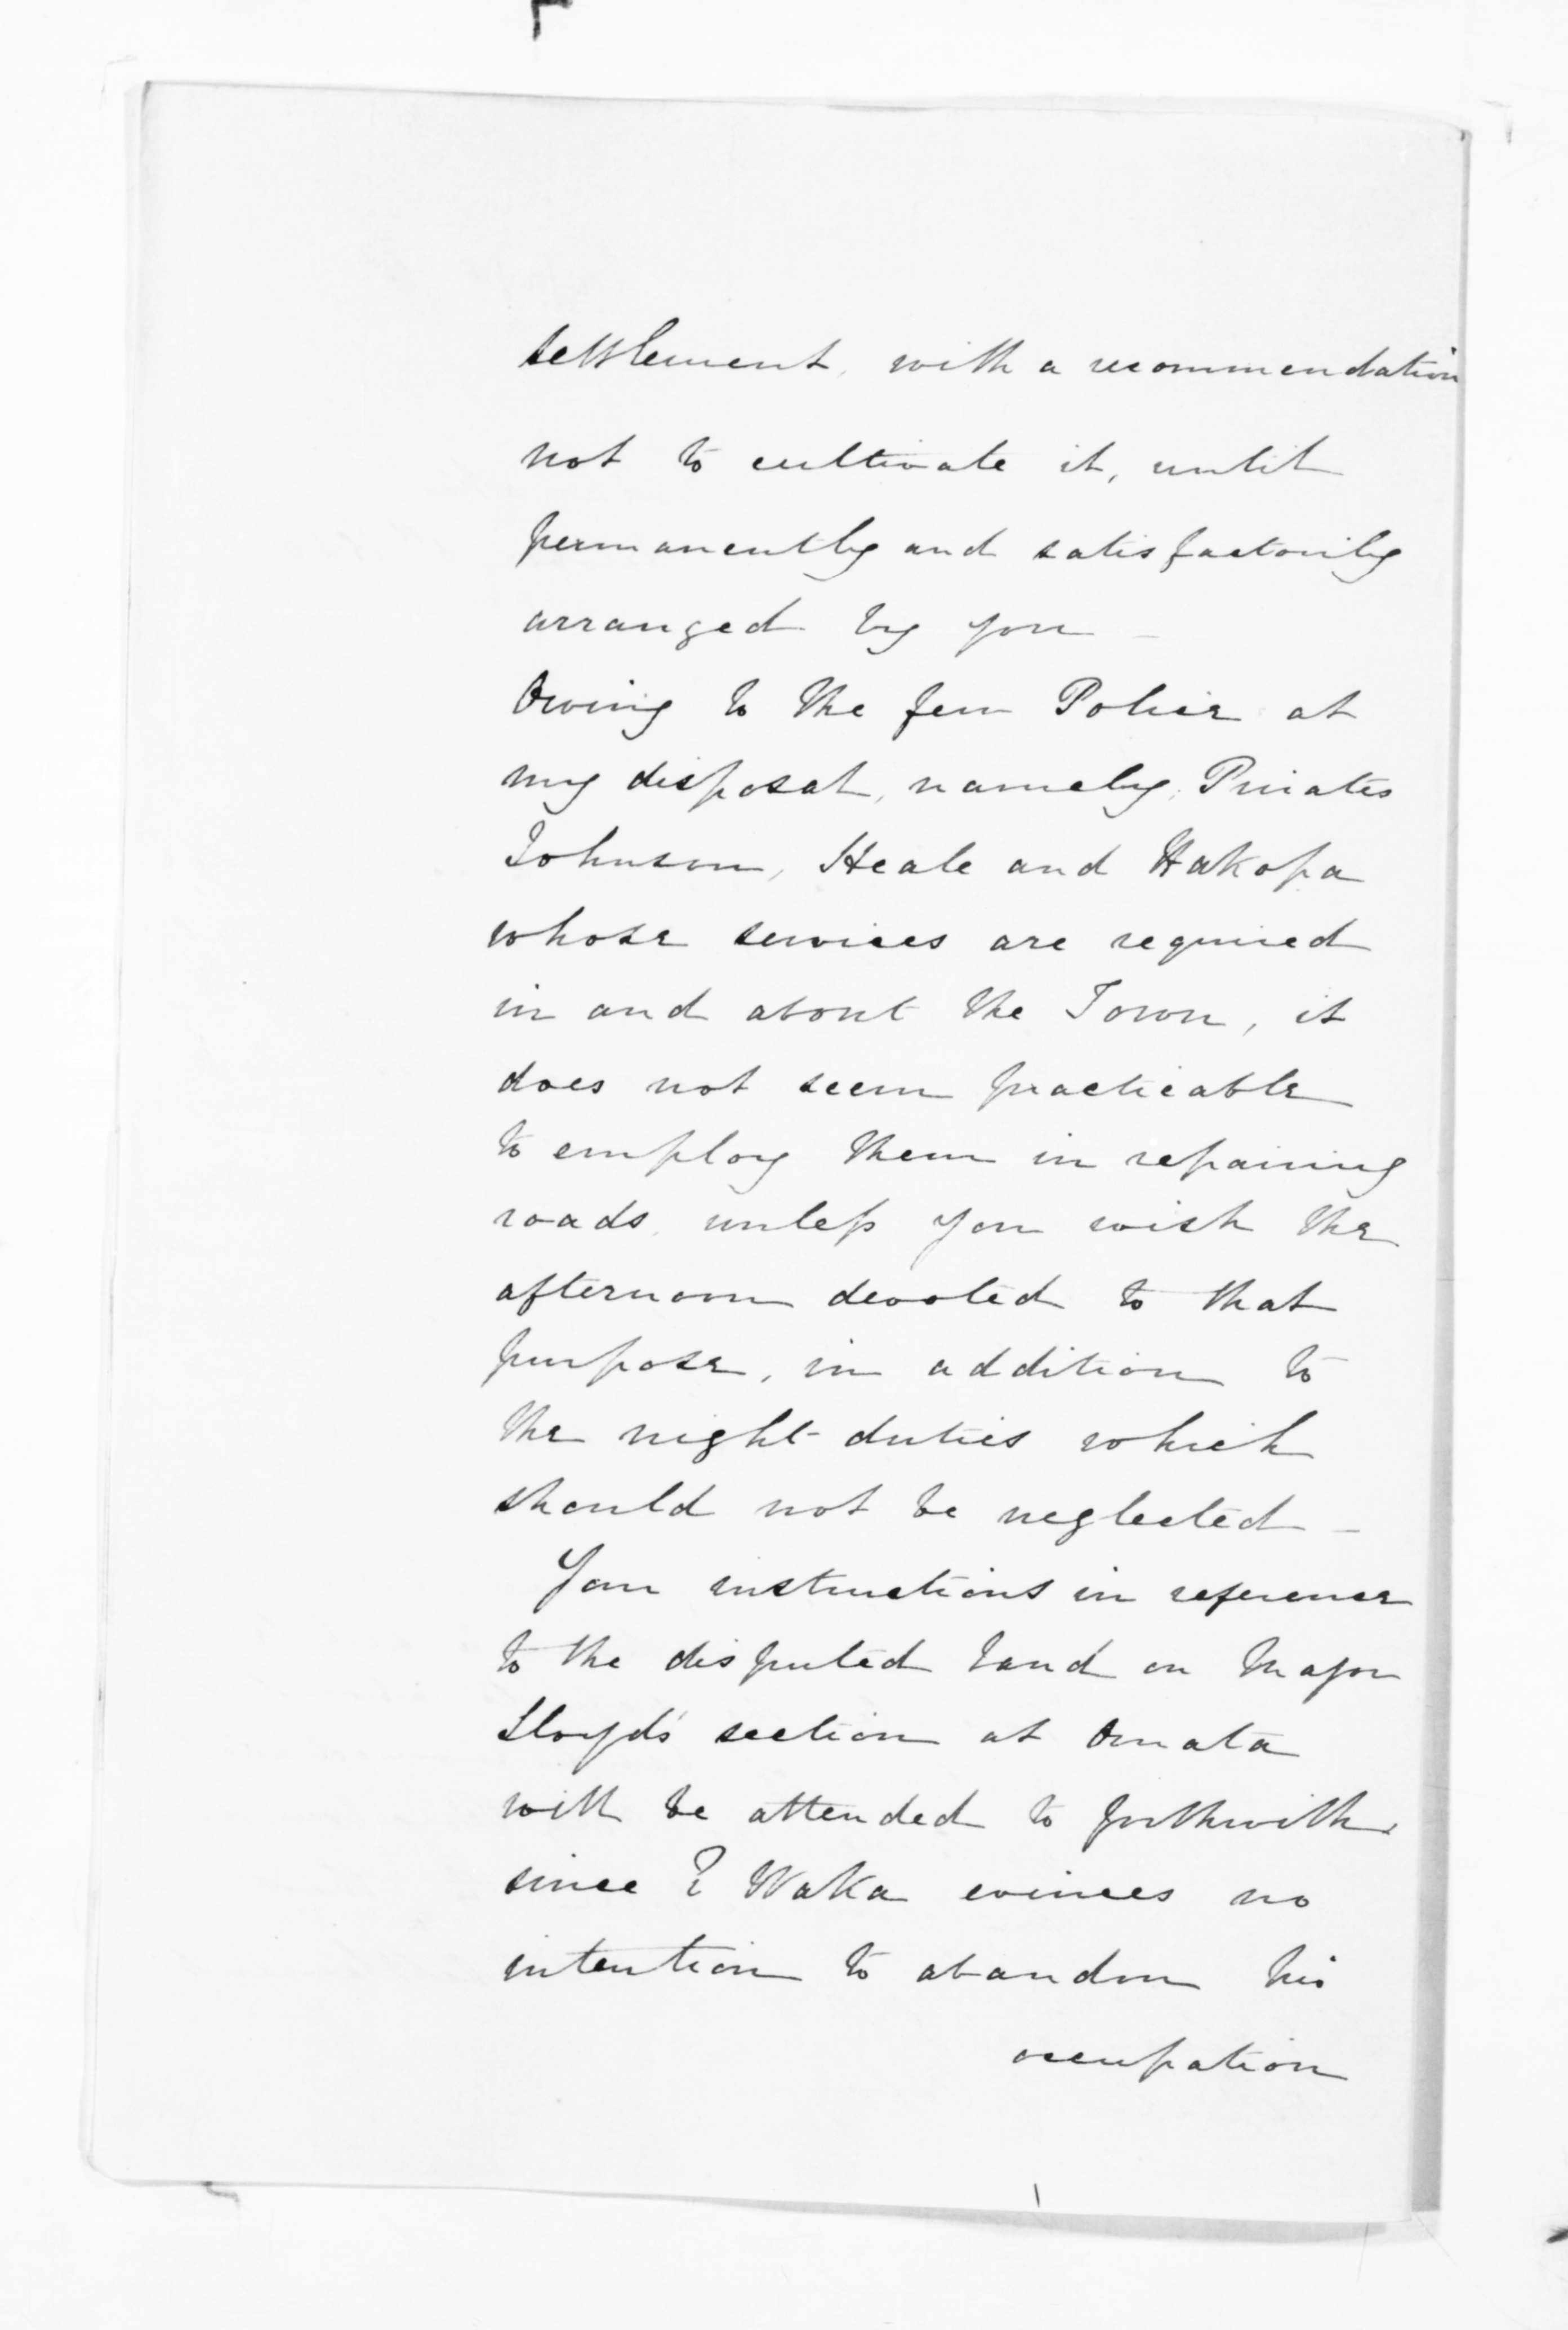 settlement, with a recommendation
not to cultivate it, until
permanently and satisfactorily
arranged by you —
Owing to the few Police at
my disposal, namely, Privates
Johnson, Heale and Hakopa
whose services are required
in and about the Town, it
does not seem practicable
to employ them in repairing
roads, unless you wish the
afternoon devoted to that
purpose, in addition to
the night duties which
should not be neglected —
Your instructions in reference
to the disputed land on Major
Lloyd's section at Omata
will be attended to forthwith,
since E Waka evinces no
intention to abandon his
occupation